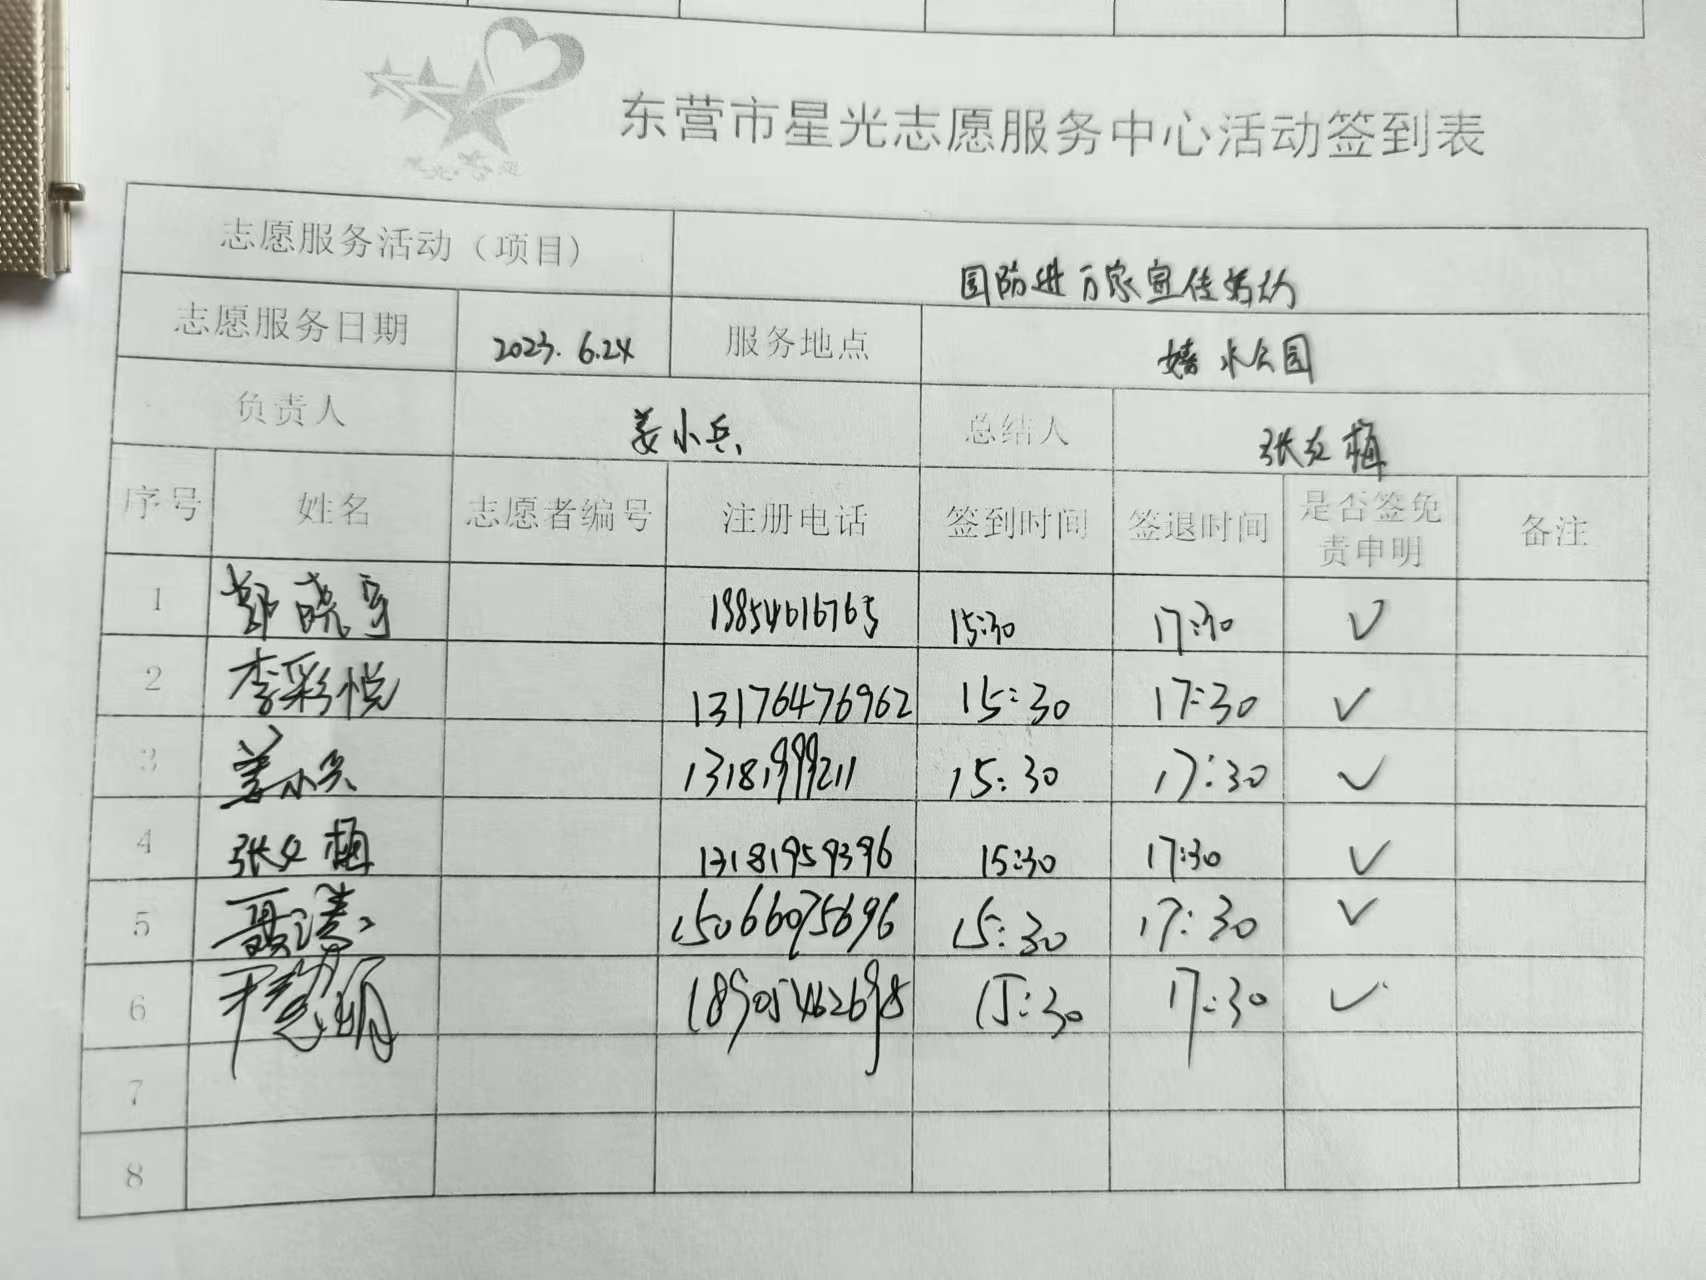 东营市星光志愿服务中心活动签到表
志愿服务活动（项目） 国防进万家宣传活动
志愿服务日期 2023.6.24 服务地点 嬉水公园
负责人 姜小兵 总结人 张文梅
序号 姓名 志愿者编号 注册电话 签到时间 签退时间 是否签免责申明 备注
1 郭晓宇 19854616765 15:30 17:30 ✓
2 李彩悦 13176476962 15:30 17:30 ✓
3 姜小兵 13181999211 15:30 17:30 ✓
4 张文梅 13181959396 15:30 17:30 ✓
5 聂涛 15066075696 15:30 17:30 ✓
6 18905462698 15:30 17:30 ✓
7
8